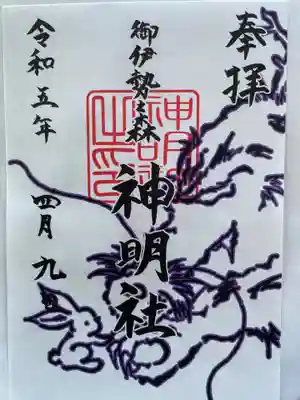 奉拝
御伊勢森
神明社
令和五年 四月九日